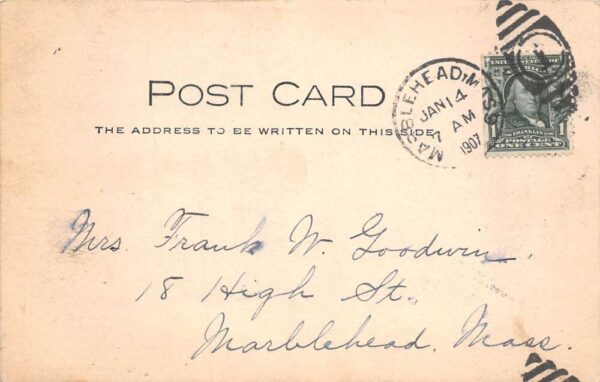 POST CARD
THE ADDRESS TO BE WRITTEN ON THIS SIDE
MARBLEHEAD, MASS.
JAN 14
7 AM
1907
UNITED STATES OF AMERICA
1 FRANKLIN 1
POSTAGE
ONE CENT
Mrs. Frank W. Goodwin.
18 High St.,
Marblehead. Mass.